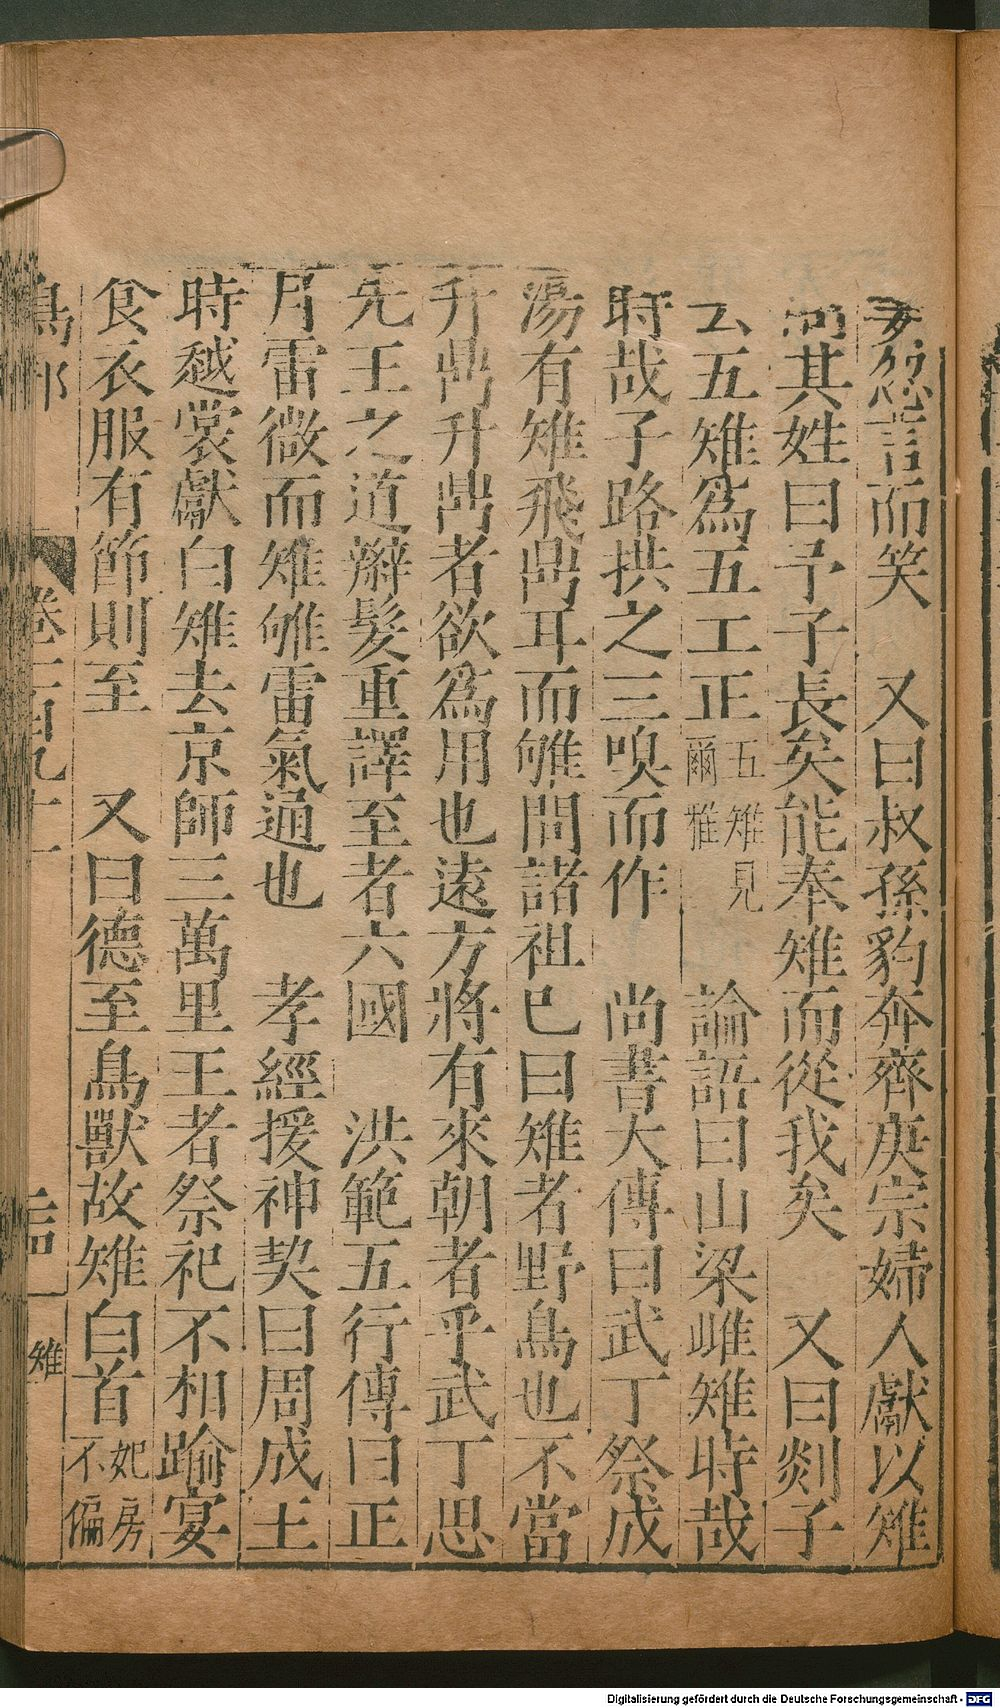 忽言而笑　又曰叔孫豹奔齊庚宗婦人獻以雉
問其姓曰予子長矣能奉雉而從我矣　又曰郯子
云五雉爲五工正五雉見爾雅　論語曰山梁雌雉時哉
時哉子路拱之三嗅而作　尚書大傳曰武丁祭成
湯有雉飛鼎耳而雊問諸祖巳曰雉者野鳥也不當
升鼎升鼎者欲爲用也遠方將有來朝者乎武丁思
先王之道辮髮重譯至者六國　洪範五行傳曰正
月雷微而雉雊雷氣通也　孝經援神契曰周成王
時越裳獻白雉去京師三萬里王者祭祀不相踰宴
食衣服有節則至　又曰德至鳥獸故雉白首妃房不偏
鳥部　卷一百九十一　雉
Digitalisierung gefördert durch die Deutsche Forschungsgemeinschaft - DFG